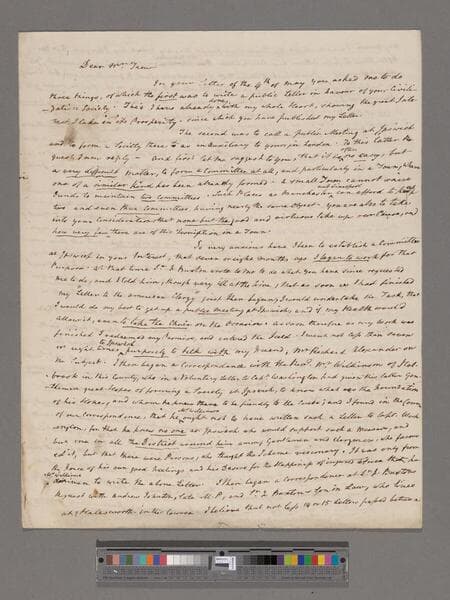 Dear Mrs Trew
In your Letter of the 4th of May you asked me to do
three things, of which the first was to write a public Letter in favour of your Civili-
zation Society. This I have already done with my whole Heart, shewing the great Inte-
rest I take in its Prosperity, since which you have published my Letter.
The second was to call a public Meeting at Ipswich
and to form a Society there to as an auxiliary to yours in London. To this latter Re-
quest I now reply - And first let me suggest to you, that it is no easy, but
a very difficult Matter, to form a Committee at all, and particularly in a Town, where
one of a similar kind has been already formed - A small Town cannot raise
Funds to maintain two Committees. Such Places as Manchester can afford to keep
two and even three Committees, having nearly the same object. You are also to take
into your Consideration that none but the good and virtuous take up our Cause, and
how very few there are of this Description in a Town.
So very anxious have I been to establish a Committee
at Ipswich in your Interest, that seven weeks months ago I began to work for that
Purpose. At that time Sr F. Buxton wrote to me to do what you have since requested
me to do, and I told him, though very ill at the time, that as soon as I had finished
my Letter to the American Clergy, just then begun, I would undertake the Task, that
I would do my best to get up a public meeting at Ipswich, and if my Health would
allow it, even to take the Chair on the Occasion. As soon therefore as my work was
finished I redeemed my Promise, and entered the Field. I went not less than seven
or eight times to Ipswich purposely to talk with my Friend, Mr Richard Alexander on
the Subject. I then began a Correspondence with the Revd Mr Wilkinson of
in this County, who in a voluntary Letter to Captn Washington had given this latter Gen-
tleman great Hopes of forming a Society at Ipswich, to know what was the Foundation
of his Hopes, and whom he knew there to be friendly to the Cause; and I found in the Course
of our Correspondence, that he ought not to have written such a Letter to Captn Wash-
ington, for that he knew no one at Ipswich who would support such a Measure, and
but one in all the District round him among Gentlemen and Clergymen, who favour-
ed it, but that there were Persons, who thought the Scheme visionary. It was only from
the force of his own good Feelings and his Desire for the Happiness of injured Africa that
Mr Wilkinson to write the above Letter. I then began a Correspondence at Sr F. Buxton's
Request with Andrew Johnston, late M.P. and Sr F. Buxton's Son in Law, who lives
at Halesworth in the County. I believe that not less 14 or 15 Letters passed between